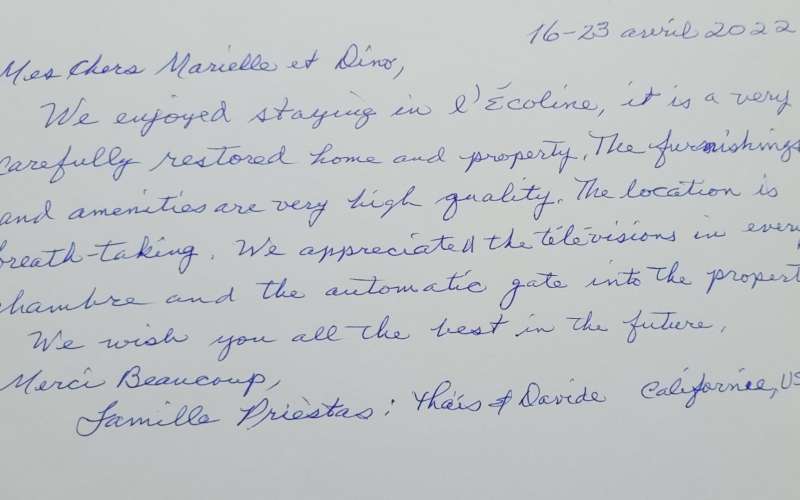 16-23 avril 2022
Mes chers Marielle et Dino,
We enjoyed staying in l'Écoline, it is a very
carefully restored home and property. The furnishings
and amenities are very high quality. The location is
breath-taking. We appreciated the télévisions in every
chambre and the automatic gate into the propert
We wish you all the best in the future.
Merci Beaucoup,
Famille Prièstas: Thaïs & Davide Californie, US